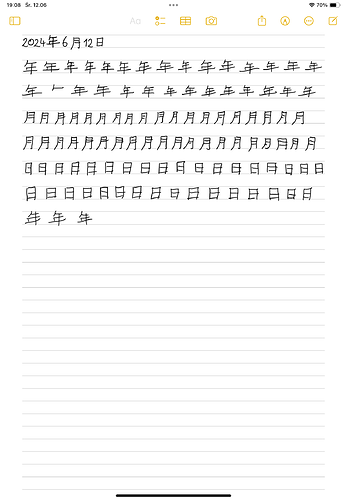 19:08 Śr. 12.06 70%
Aa
2024年6月12日
年年年年年年年年年年年年年年年
年 年年年年年年年年年年年年
月月月月月月月月月月月月月月月月月月月
月月月月月月月月月月月月月月月月月月月月
日日日日日日日日日日日日日日日日日日
日日日日日日日日日日日日日日日日
年年年